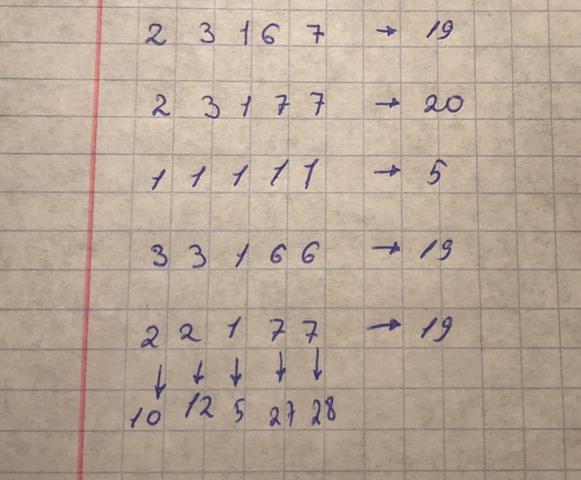 2 3 1 6 7 → 19
2 3 1 7 7 → 20
1 1 1 1 1 → 5
3 3 1 6 6 → 19
2 2 1 7 7 → 19
↓ ↓ ↓ ↓ ↓
10 12 5 27 28